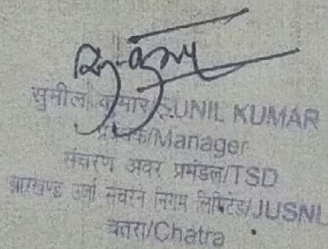 सुनील कुमार/SUNIL KUMAR
प्रबंधक/Manager
संचरण अवर प्रमंडल/TSD
झारखण्ड उर्जा संचरन निगम लिमिटेड/JUSNL
चतरा/Chatra